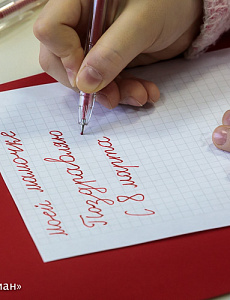 моей мамочке
Поздравляю
С 8 марта
ман»